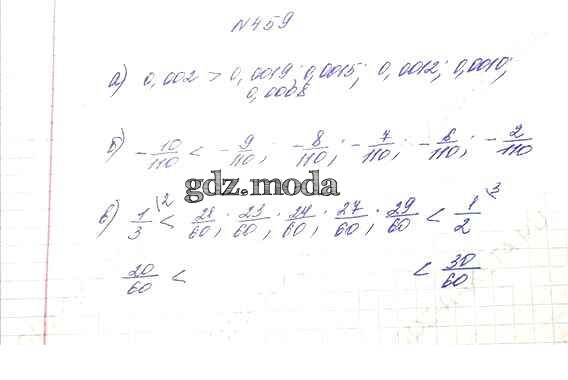 №459
а) 0,002 > 0,0019; 0,0015; 0,0012; 0,0010;
0,0008
б) -10/110 < -9/110; -8/110; -7/110; -6/110; -2/110
gdz.moda
в) 1/3 \2 < 21/60; 23/60; 24/60; 27/60; 29/60 < 1/2 \3
20/60 < < 30/60